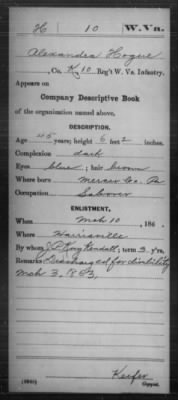 H 10 W.Va.
Alexandra Hogue
, Co. K, 10 Reg't W. Va. Infantry.
Appears on
Company Descriptive Book
of the organization named above.
DESCRIPTION.
Age 45 years; height 6 feet 2 inches.
Complexion dark
Eyes blue; hair brown
Where born Mercer Co. Pa
Occupation Laborer
ENLISTMENT.
When Mch 10, 186 .
Where Harrisville
By whom Kendall; term 3 y'rs.
Remarks Discharged for disability
Mch 3, 1863,
Keefer
Copyist.